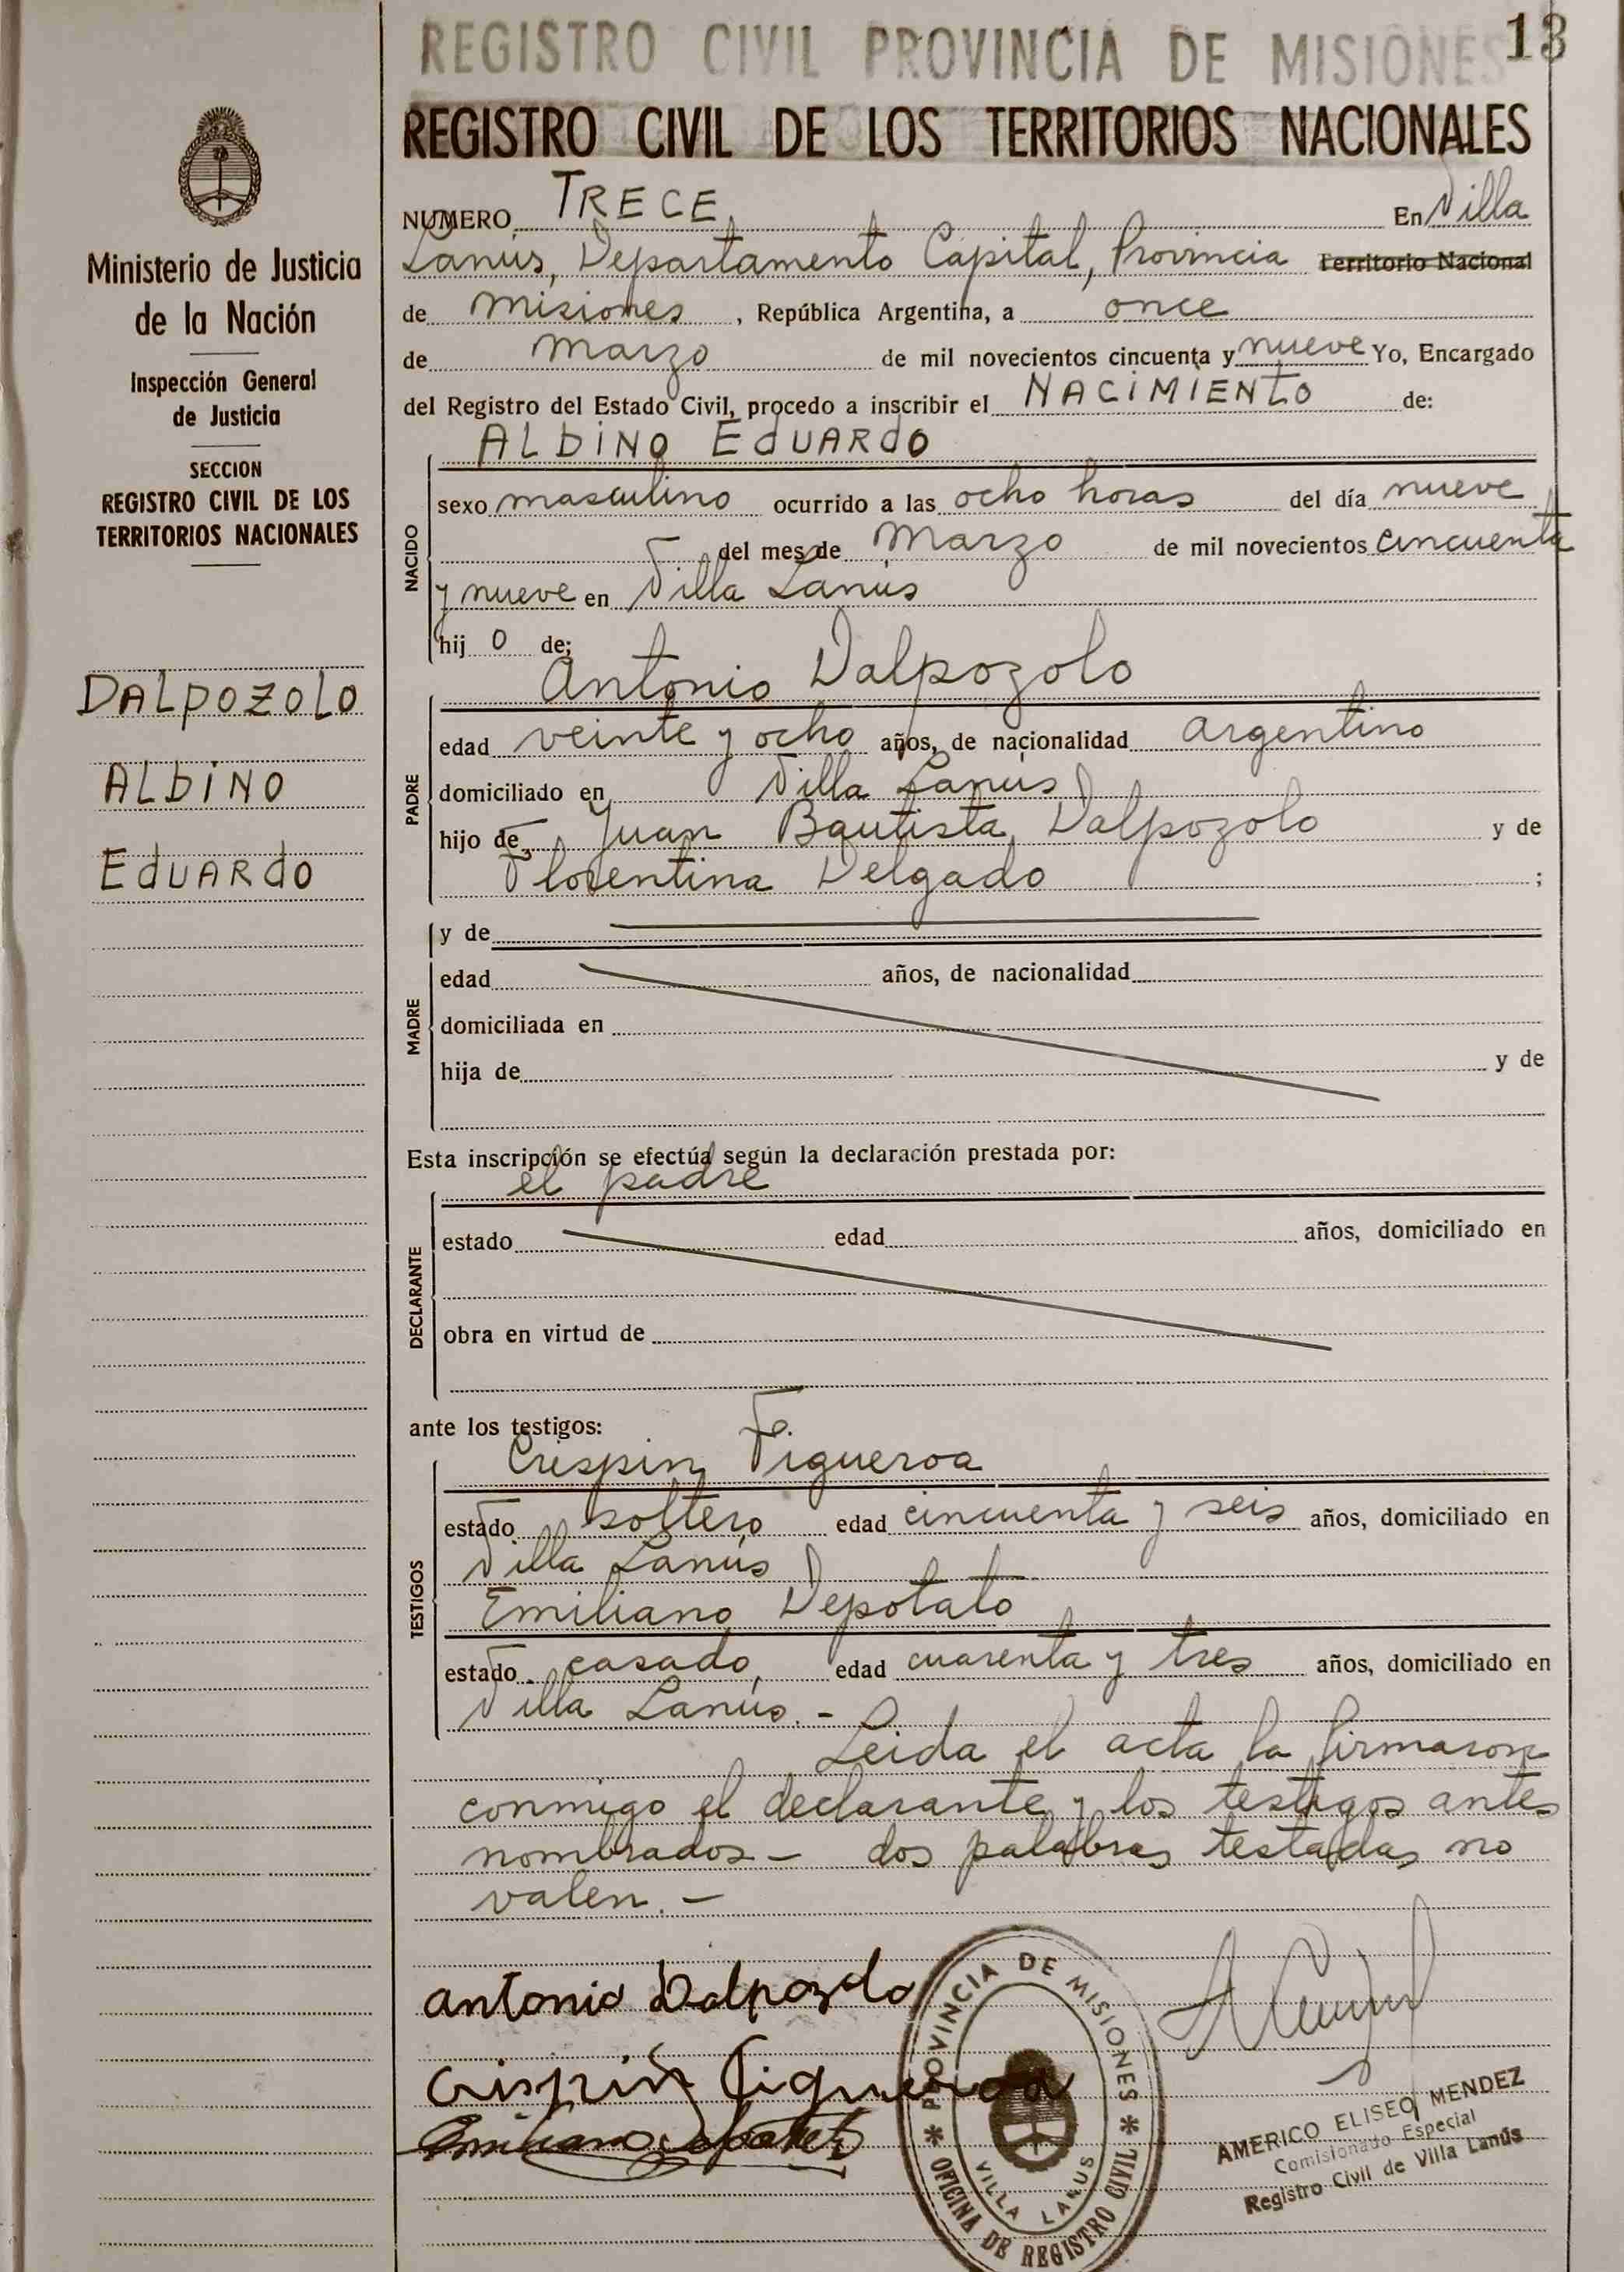 REGISTRO CIVIL PROVINCIA DE MISIONES
13
REGISTRO CIVIL DE LOS TERRITORIOS NACIONALES
Ministerio de Justicia
de la Nación
Inspección General
de Justicia
SECCION
REGISTRO CIVIL DE LOS
TERRITORIOS NACIONALES
DALPOZOLO
ALBINO
EdUARdO
NUMERO TRECE En Villa
Lanús, Departamento Capital, Provincia Territorio Nacional
de Misiones, República Argentina, a once
de Marzo de mil novecientos cincuenta y nueve Yo, Encargado
del Registro del Estado Civil, procedo a inscribir el NACIMIENTO de:
ALBINO EdUARdO
NACIDO
sexo masculino ocurrido a las ocho horas del día nueve
del mes de Marzo de mil novecientos cincuenta
y nueve en Villa Lanús
hij o de;
Antonio Dalpozolo
PADRE
edad veinte y ocho años, de nacionalidad argentino
domiciliado en Villa Lanús
hijo de Juan Bautista Dalpozolo y de
Florentina Delgado ;
y de
MADRE
edad años, de nacionalidad
domiciliada en
hija de y de
Esta inscripción se efectúa según la declaración prestada por:
el padre
DECLARANTE
estado edad años, domiciliado en
obra en virtud de
ante los testigos:
Crispin Figueroa
TESTIGOS
estado soltero edad cincuenta y seis años, domiciliado en
Villa Lanús
Emiliano Depotato
estado casado, edad cuarenta y tres años, domiciliado en
Villa Lanús.-
Leida el acta la firmaron
conmigo el declarante y los testigos antes
nombrados - dos palabras testadas no
valen.-
Antonio Dalpozolo
Crispín Figueroa
PROVINCIA DE MISIONES
OFICINA DE REGISTRO CIVIL
VILLA LANUS
AMERICO ELISEO MENDEZ
Comisionado Especial
Registro Civil de Villa Lanús